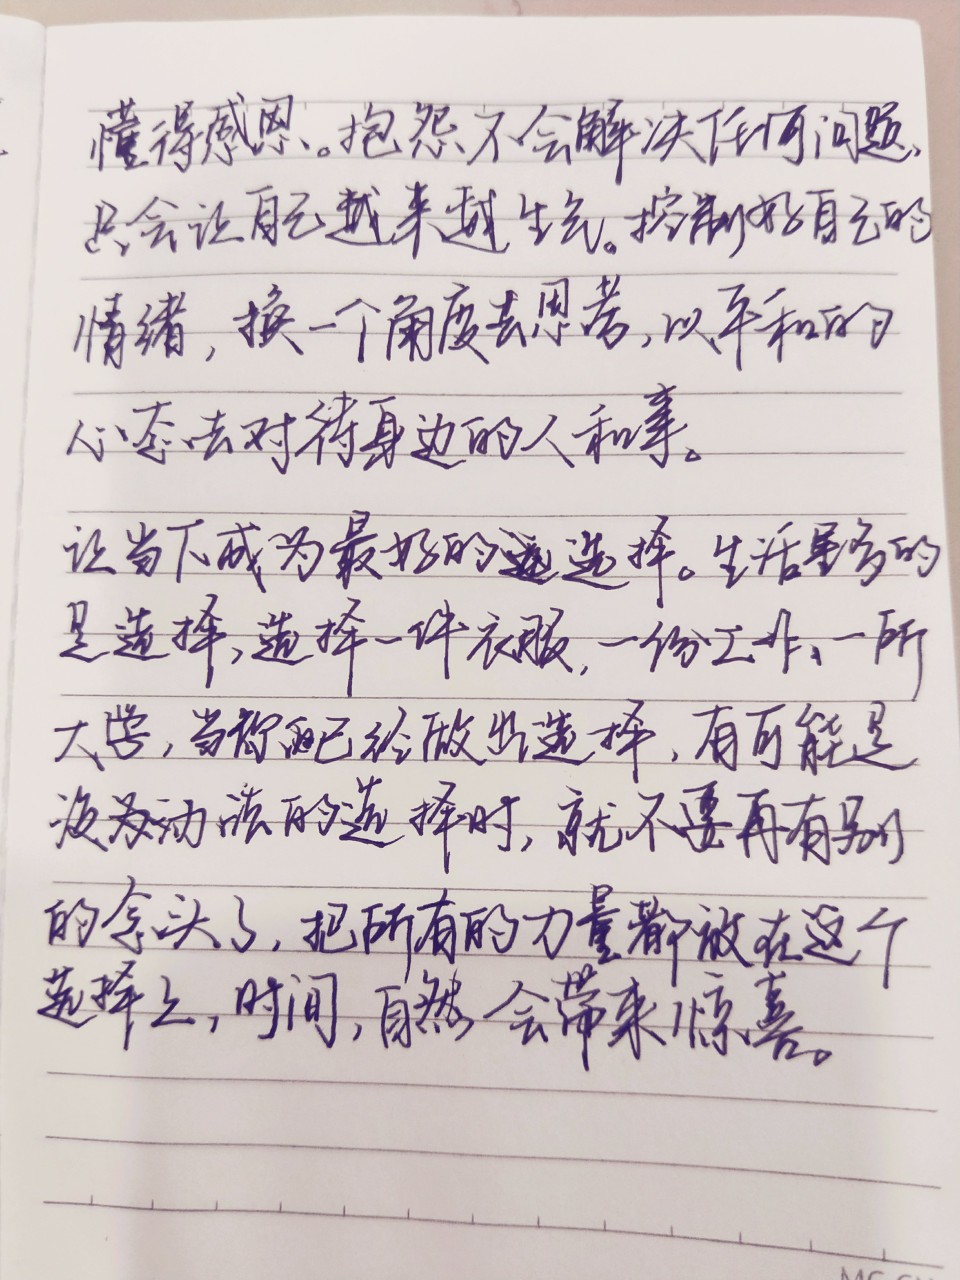 懂得感恩。抱怨不会解决任何问题、
只会让自己越来越生气。控制好自己的
情绪，换一个角度去思考，以平和的
心态去对待身边的人和事。
让当下成为最好的选择。生活里多的
是选择，选择一件衣服，一份工作、一所
大学，当你已经做出选择，有可能是
没办法的选择时，就不要再有别
的念头了，把所有的力量都放在这个
选择上，时间，自然会带来惊喜。